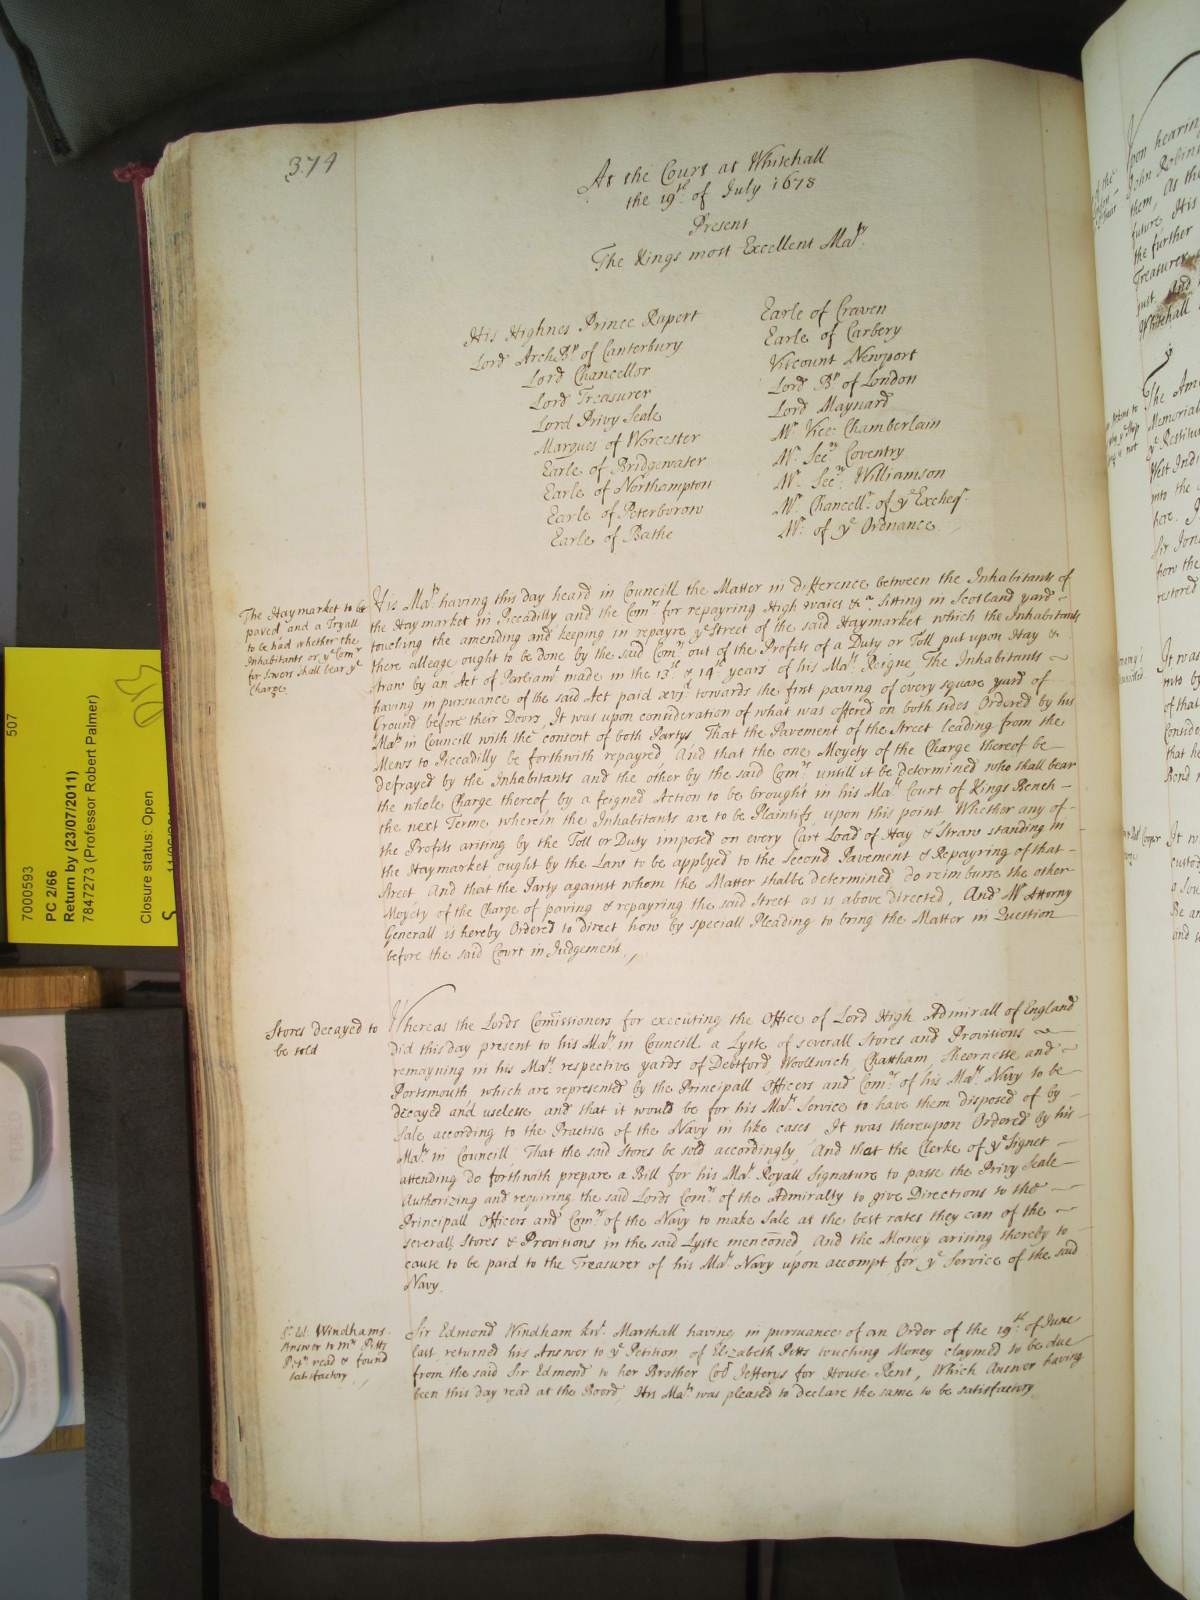 374
At the Court at Whitehall
the 19th. of July 1678
Present
The Kings most Excellent Maty.
His Highnes Prince Rupert
Lord ArchBp. of Canterbury
Lord Chancellor
Lord Treasurer
Lord Privy Seale
Marques of Worcester
Earle of Bridgewater
Earle of Northampton
Earle of Peterborow
Earle of Bathe
Earle of Craven
Earle of Carbery
Viscount Newport
Lord Bp of London
Lord Maynard
Mr. Vice Chamberlain
Mr. Secry. Coventry
Mr. Secry. Williamson
Mr. Chancellr. of ye Excheqr.
Mr. of ye Ordnance
The Haymarket to be
paved and a Tryall
to be had whether the
Inhabitants or ye Comrs
for sewers shall bear ye
Charge
His Maty having this day heard in Councill the Matter in difference between the Inhabitants of
the Haymarket in Piccadilly and the Comrs for repayring High waies &ca. sitting in Scotland yard
touching the amending and keeping in repayre ye Street of the said Haymarket which the Inhabitants
there alleage ought to be done by the said Comrs out of the Profits of a Duty or Toll put upon Hay &
straw by an Act of Parliamt made in the 13th & 14th years of his Mats Reigne The Inhabitants
having in pursuance of the said Act paid xvjd towards the first paving of every square yard of
Ground before their Doors, It was upon consideration of what was offered on both sides Ordered by his
Maty in Councill with the consent of both Partys That the Pavement of the Street leading from the
Mews to Piccadilly be forthwith repayred, And that the one Moyety of the Charge thereof be
defrayed by the Inhabitants and the other by the said Comrs untill it be determined who shall bear
the whole Charge thereof by a feigned Action to be brought in his Mats Court of Kings Bench
the next Terme wherein the Inhabitants are to be Plaintifs upon this point Whether any of
the Profits arising by the Toll or Duty imposed on every Cart Load of Hay & Straw standing in
the Haymarket ought by the Law to be applyed to the Second Pavement & Repayring of that
street, And that the Party against whom the Matter shalbe determined do reimburse the other
Moyety of the Charge of paving & repayring the said Street as is above directed, And Mr Attorny
Generall is hereby Ordered to direct how by speciall Pleading to bring the Matter in Question
before the said Court in Judgement.
Stores decayed to
be sold
Whereas the Lords Comissioners for executing the Office of Lord High Admirall of England
did this day present to his Maty in Councill a Lyste of severall Stores and Provisions
remayning in his Mats respective yards of Debtford, Woollwich, Chattham, Sheernesse and
Portsmouth which are represented by the Principall Officers and Comrs of his Mats Navy to be
decayed and uselesse and that it would be for his Mats Service to have them disposed of by
Sale according to the Practise of the Navy in like cases It was thereupon Ordered by his
Maty in Councill That the said Stores be sold accordingly, And that the Clerke of ye Signet
attending do forthwith prepare a Bill for his Mats Royall Signature to passe the Privy Seale
Authorizing and requiring the said Lords Comrs of the Admiralty to give Directions to the
Principall Officers and Comrs of the Navy to make Sale at the best rates they can of the
severall Stores & Provisions in the said Lyste mencōned And the Money arising thereby to
cause to be paid to the Treasurer of his Mats Navy upon accompt for ye Service of the said
Navy.
Sr. Ed: Windhams
Answer to Mrs Pitts
Petn read & found
satisfactory
Sir Edmond Windham Knt. Marshall having in pursuance of an Order of the 19th. of June
last returned his Answer to ye Petition of Elizabeth Pitts touching Money claymed to be due
from the said Sir Edmond to her Brother Col Jefferys for House Rent, Which Answer having
been this day read at the Board, His Maty was pleased to declare the same to be satisfactory
507
7000593
PC 2/66
Return by (23/07/2011)
7847273 (Professor Robert Palmer)
Closure status: Open